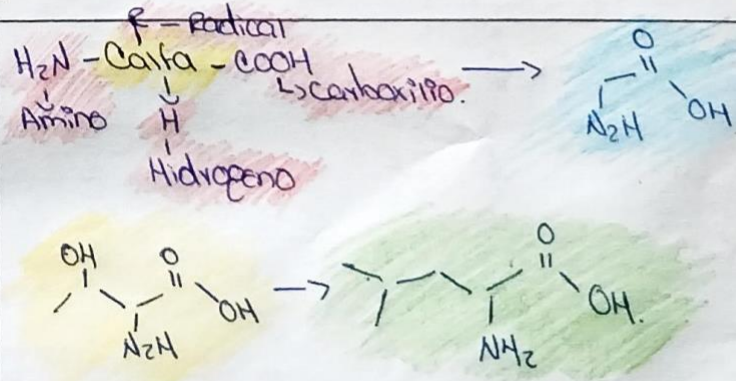 R - Radical
H₂N - Calfa - COOH
↳ carboxilio.
Amino H
Hidrogeno
O
N₂H OH
OH O
OH
N₂H
O
OH.
NH₂